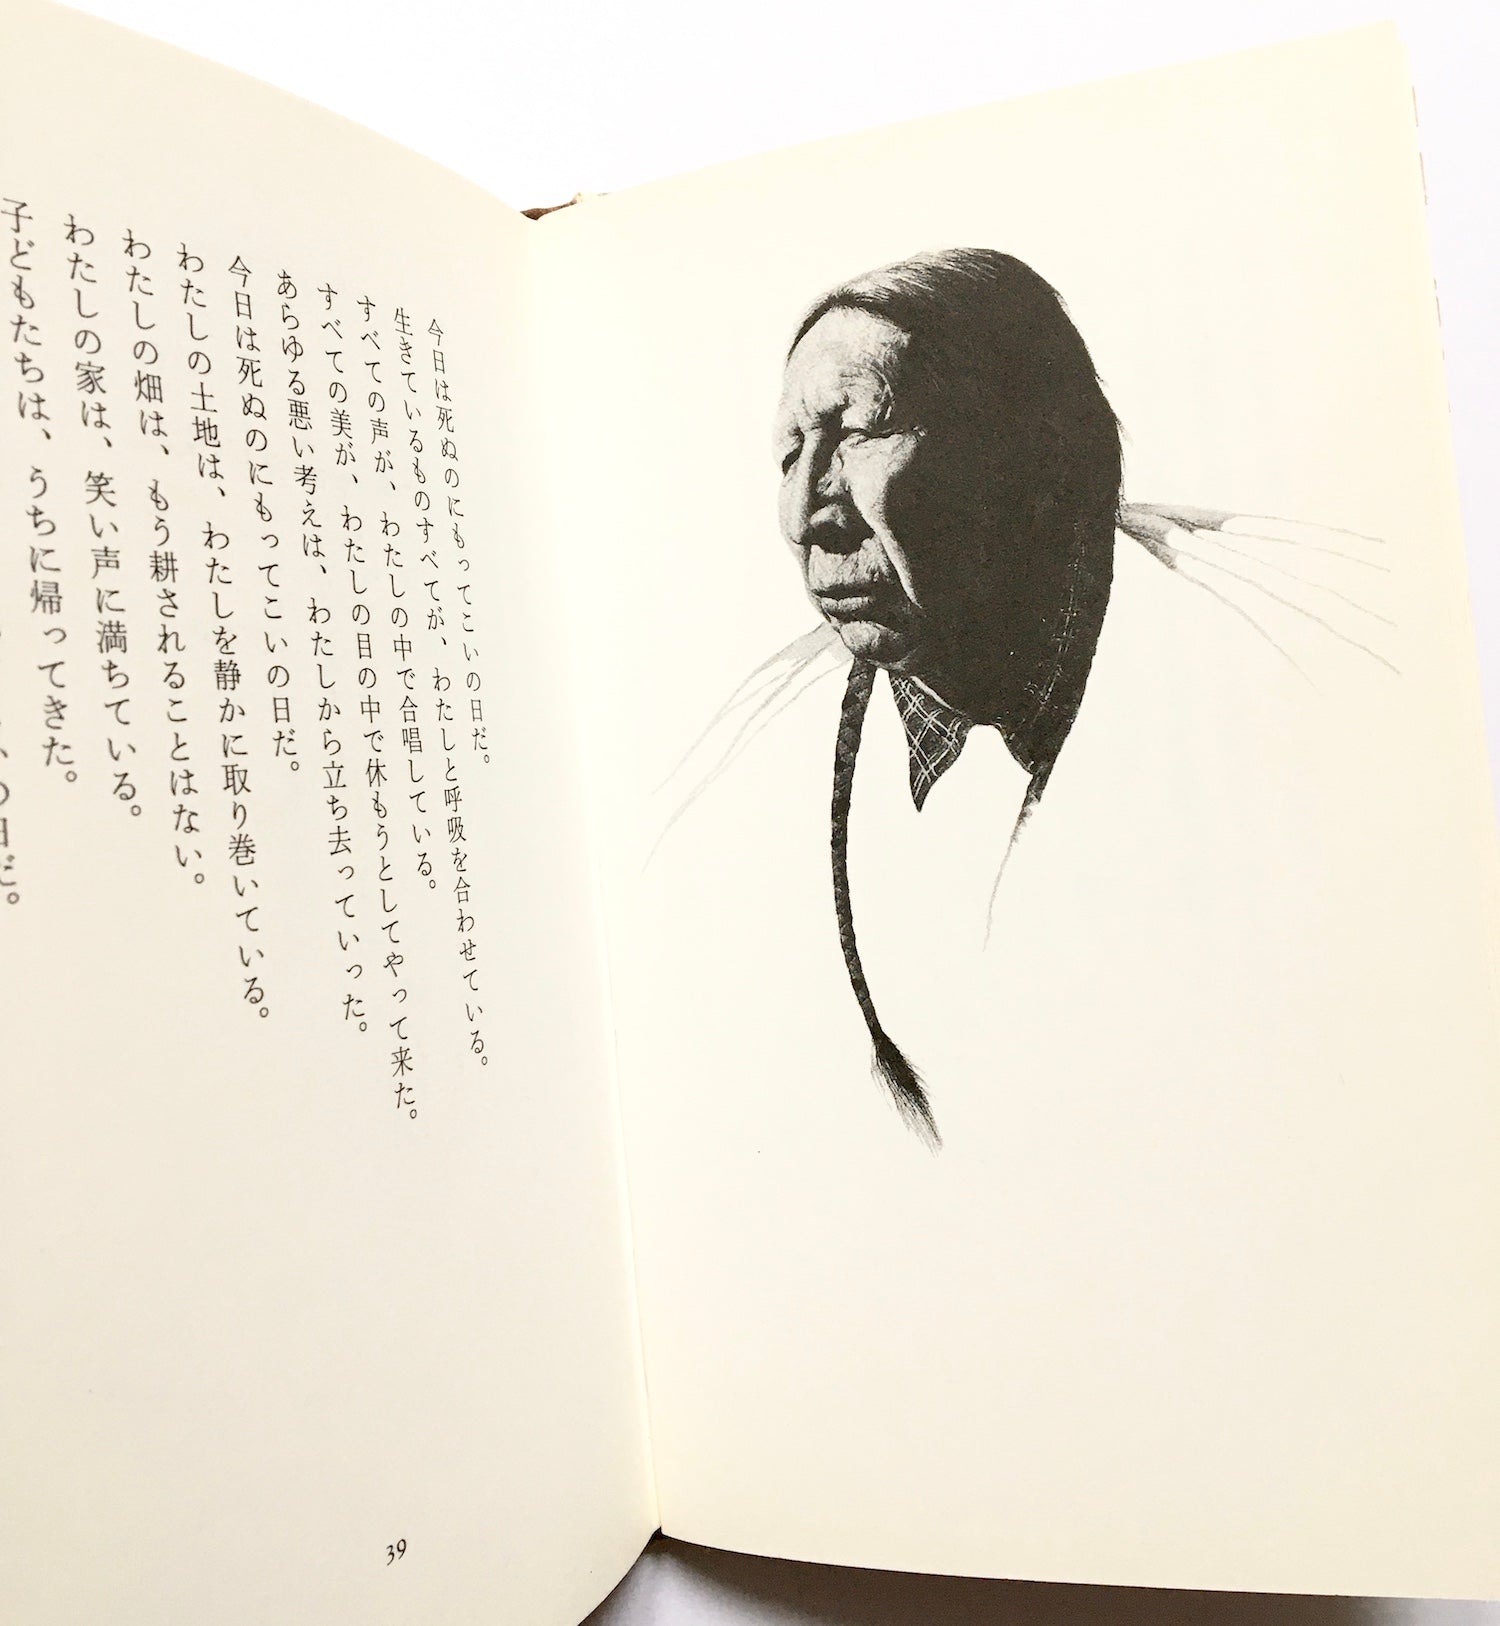 今日は死ぬのにもってこいの日だ。
生きているものすべてが、わたしと呼吸を合わせている。
すべての声が、わたしの中で合唱している。
すべての美が、わたしの目の中で休もうとしてやって来た。
あらゆる悪い考えは、わたしから立ち去っていった。
今日は死ぬのにもってこいの日だ。
わたしの土地は、わたしを静かに取り巻いている。
わたしの畑は、もう耕されることはない。
わたしの家は、笑い声に満ちている。
子どもたちは、うちに帰ってきた。
の日だ。
39